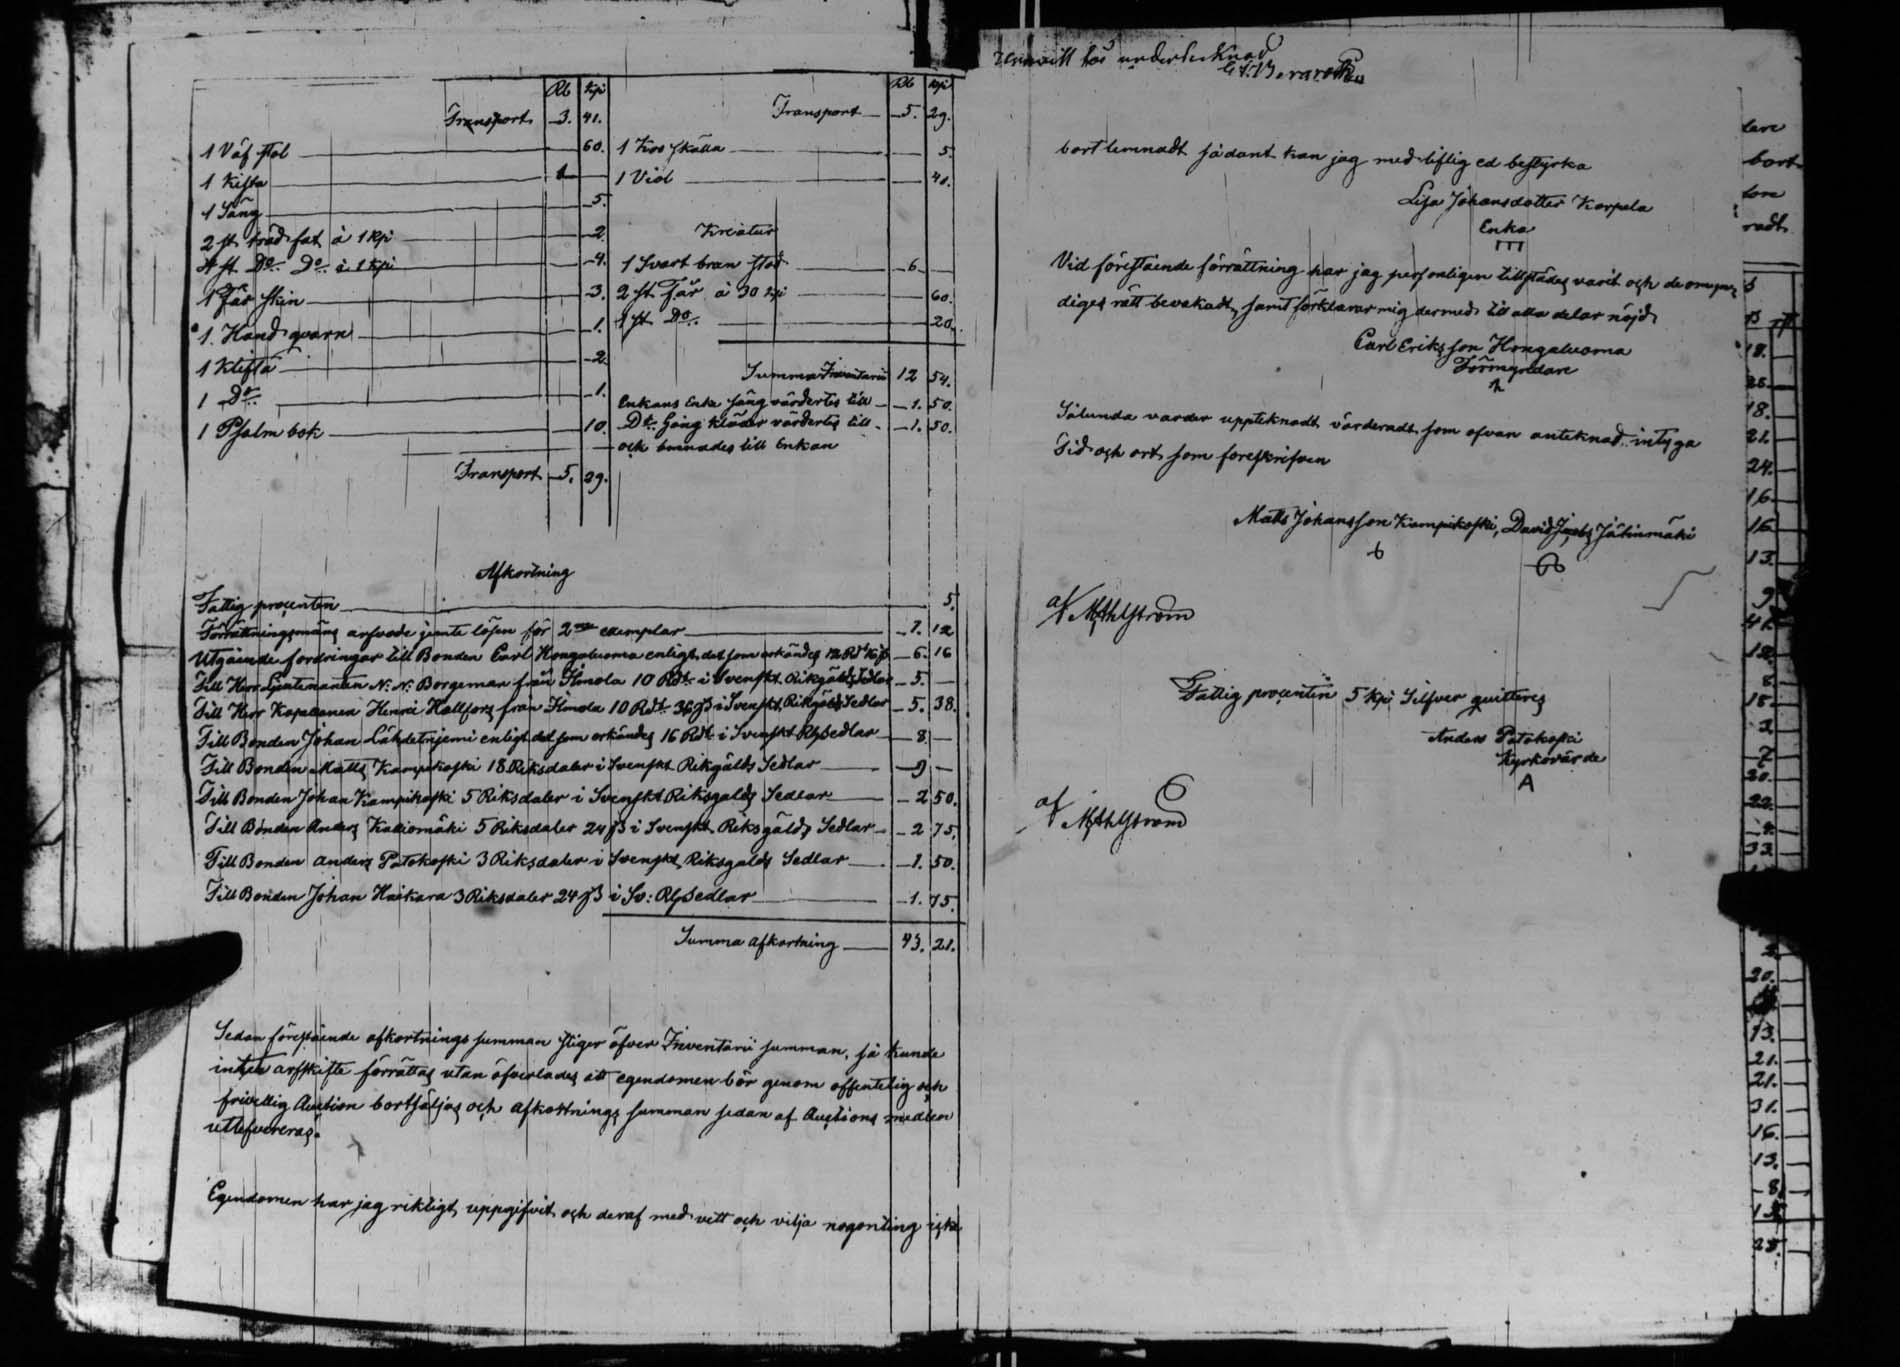 Rb Kpi
Transport 3. 41.
1 Väf stol 60.
1 Kista 1
1 Säng 5.
2 st. träd fat à 1 Kpi 2
4 st. Do Do à 1 Kpi 4.
1 Får skin 3.
1. Hand qvarn 1.
1 Klifta 2.
1 Do 1.
1 Psalm bok 10.
Transport 5. 29.
Rb Kpi
Transport 5. 29.
1 Koo skälla 5.
1 Viol 40.
Kreatur
1 Svart brun stod 6.
2 st. Får à 30 kpi 60.
1 st. Do 20.
Summa Inventarii 12 54.
Enkans Enke säng värdertes till 1. 50.
Do Gång kläder värdertes till 1. 50.
och lemnades till Enkan
Afkortning
Fattig procenten 5.
Förrättningsmäns arfvode jemte lösen för 2ne exemplar 1. 12
Utgående fordringar till Bonden Carl Hongaluoma enligt det som erkändes 12 Rd 16 ß 6. 16
Till Herr Lieutenanten N: N: Borgeman från Ilmola 10 Rdr i Svenskt Riksgälds Sedlar 5.
Till Herr Kapellanen Henric Hallfors från Ilmola 10 Rdr 36 ß i Svenskt Riksgälds Sedlar 5. 38.
Till Bonden Johan Lähdetniemi enligt det som erkändes 16 Rdr i Svenskt Rg Sedlar 8.
Till Bonden Matts Kampikoski 18 Riksdaler i Svenskt Riksgälds Sedlar 9
Till Bonden Johan Kampikoski 5 Riksdaler i Svenskt Riksgälds Sedlar 2 50.
Till Bonden Anders Kaliomäki 5 Riksdaler 24 ß i Svenskt Riksgälds Sedlar 2 75.
Till Bonden Anders Patokoski 3 Riksdaler i Svenskt Riksgälds Sedlar 1. 50.
Till Bonden Johan Haikara 3 Riksdaler 24 ß i Sv: Rg Sedlar 1. 75.
Summa afkortning 43. 21.
Sedan förestående afkortnings summan stiger öfver Inventarii summan, så kunde
intet arfskifte förrättas utan öfverlades att egendomen bör genom offentelig och
frivillig Auction bortsäljas och afkortnings summan sedan af Auctions medlen
utlefvereras.
Egendomen har jag riktigt uppgifvit och deraf med vett och vilja nogonting icke
hos undertecknad
bortlemnadt sådant kan jag med liflig ed bestyrka
Lisa Johansdotter Karpela
Enka
Vid förestående förrättning har jag personligen tillstädes varit och de omyn
diges rätt bevakadt, samt förklarar mig dermed till alla delar nöjd.
Carl Eriksson Hongaluoma
Förmyndare
Sålunda varder uppteknadt värderadt som ofvan anteknad intyga
Tid och ort somföreskrifven
Matts Johansson Kampikoski, David Jacobs Jälinmäki
af M Ahlström
Fattig procenten 5 Kpi Silfver quitteres
Anders Patokoski
Kyrkovärde
A
af M Ahlström